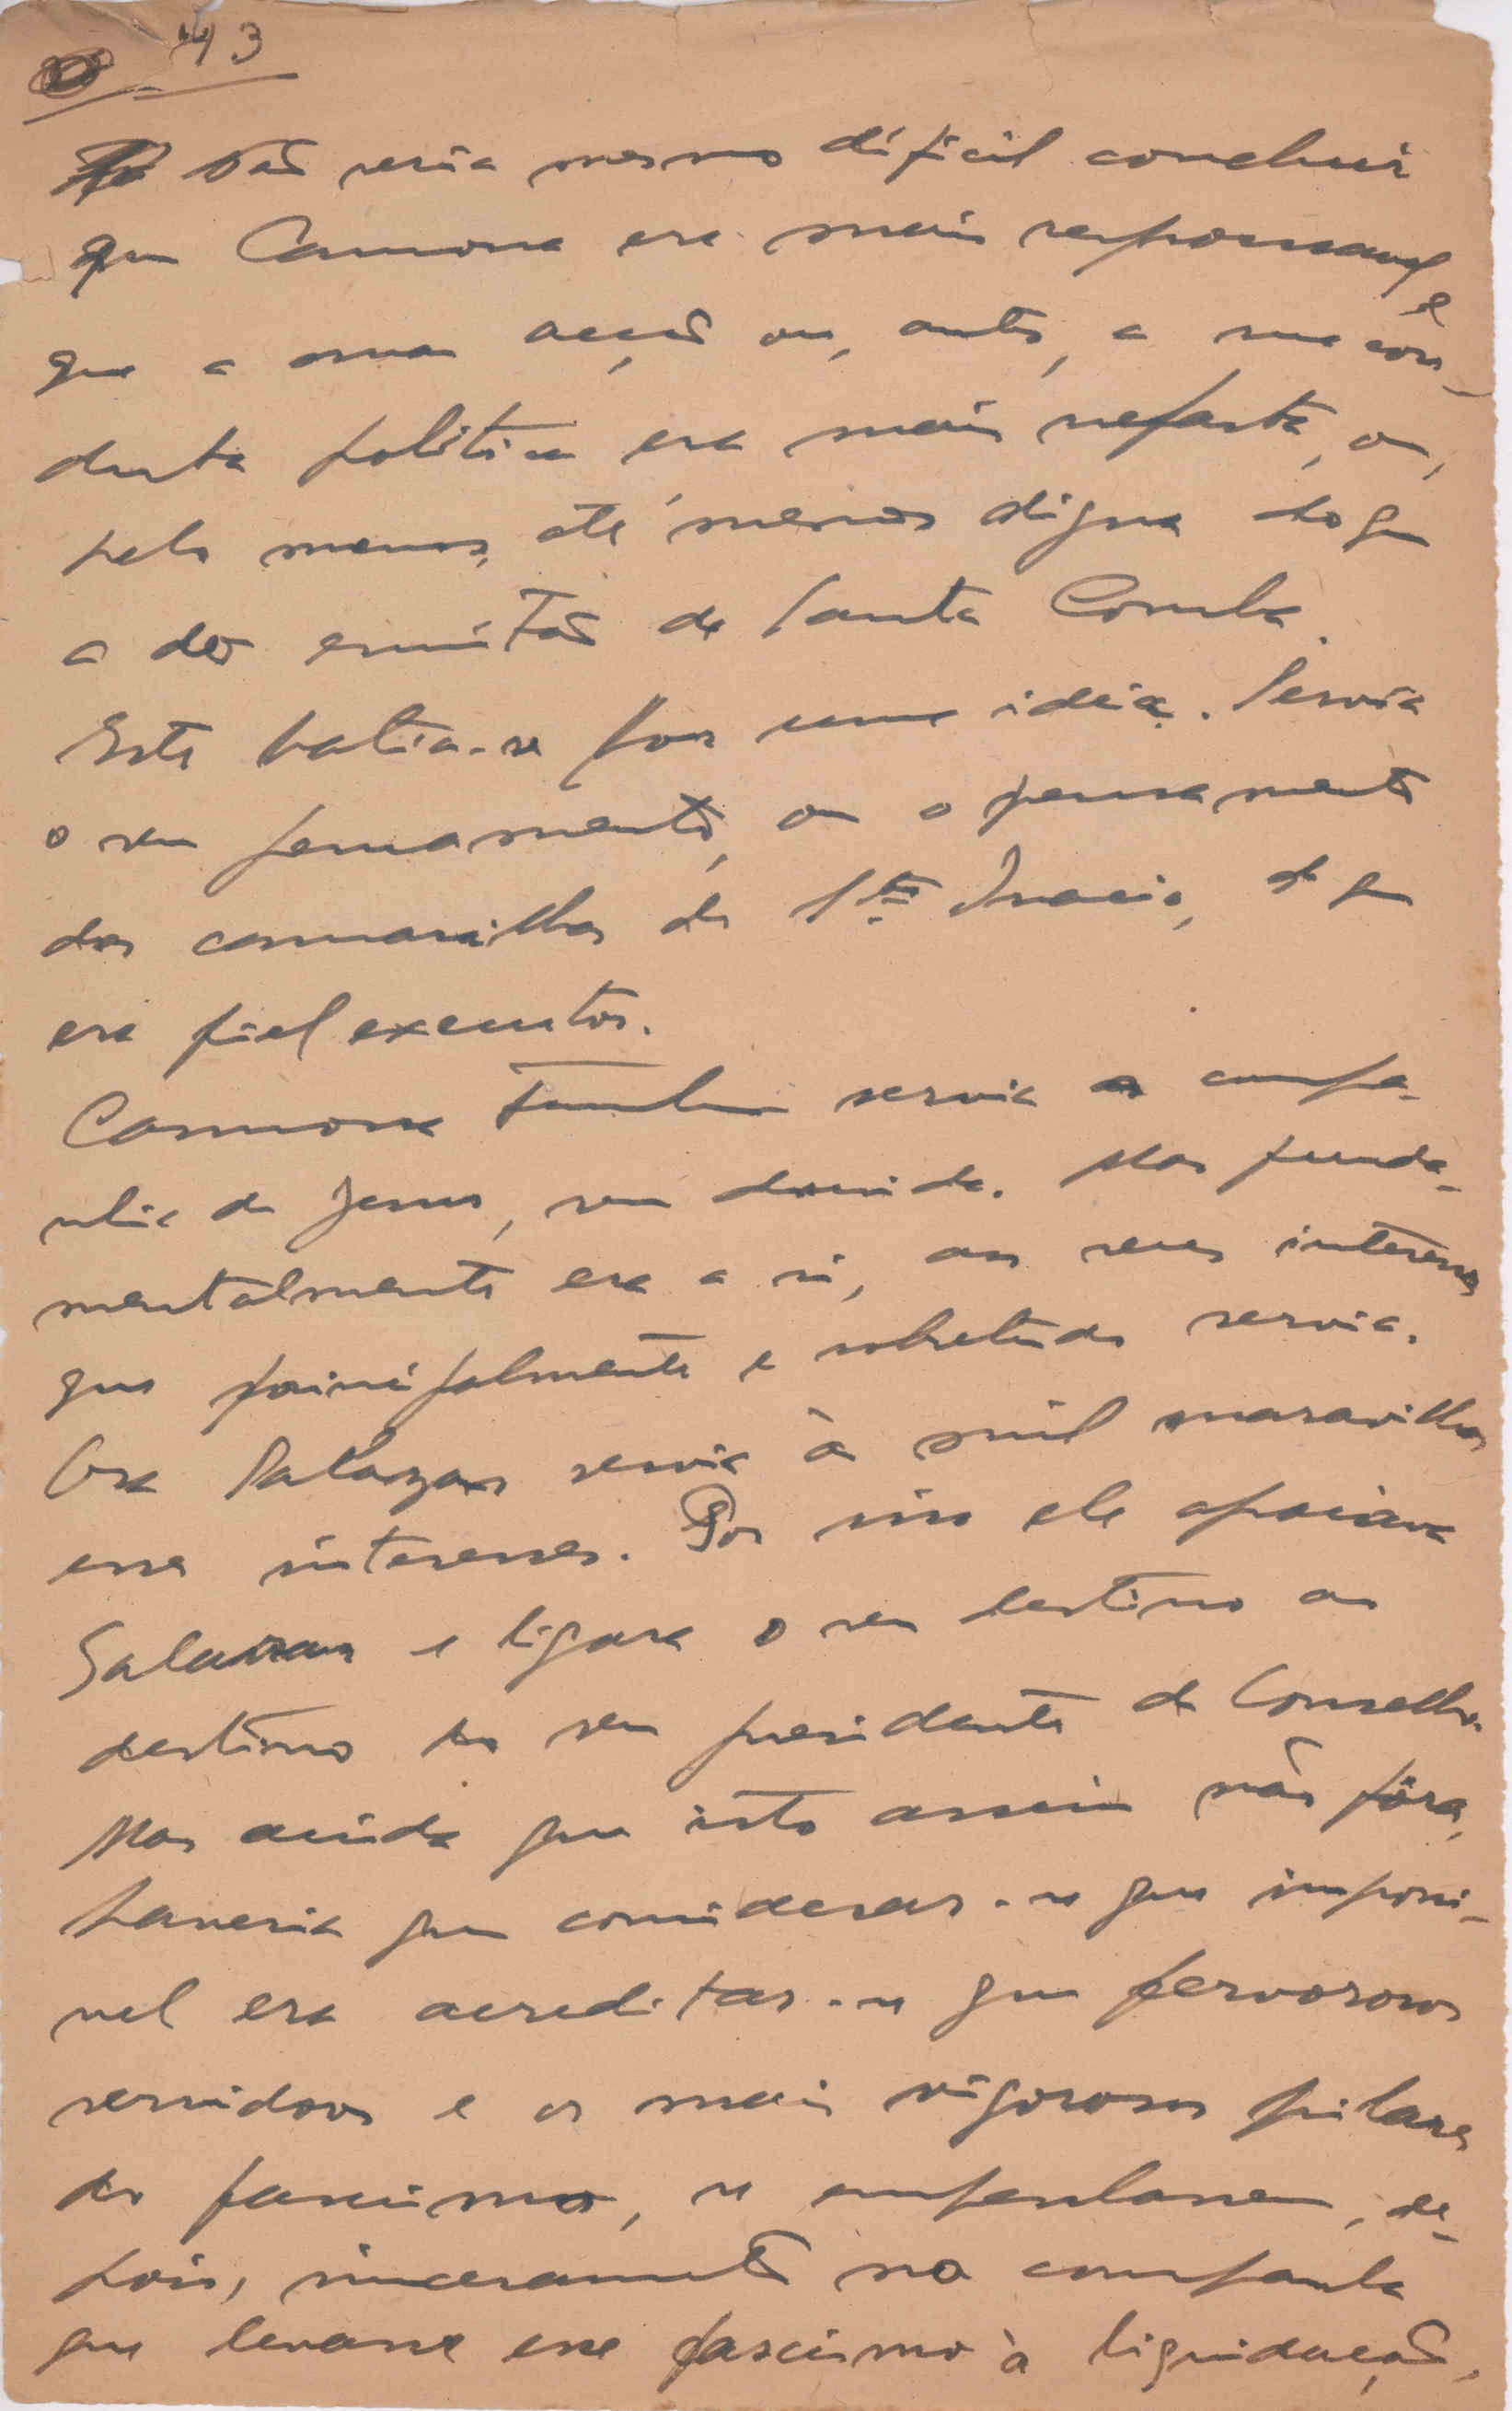 43
Não seria mesmo dificil concluir
que Carmona era mais responsavel e
que a sua acção ou, antes, a sua con-
duta politica era mais nefasta, ou,
pelo menos, até menos digna do que
a do ermitão de Santa Comba.
Este batia-se por uma idéia. Servia
o seu pensamento, ou o pensamento
das camarilhas de Sto Inacio, de que
era fiel executor.
Carmona tambem servia a compa-
nhia de Jesus, sem duvida. Mas funda-
mentalmente era a si, aos seus interesses
que principalmente e sobretudo servia.
Ora Salazar servia à mil maravilhas
esses interesses. Por isso ele apoiava
Salazar e ligara o seu destino ao
destino do seu presidente de Conselho.
Mas ainda que isto assim não fôra,
haveria que considerar-se que impossi-
vel era acreditar-se que fervorosos
servidores e os mais vigorosos pilares
do fascismo, se empenhassem, de-
pois, sinceramente na
que levasse esse fascismo à liquidação,